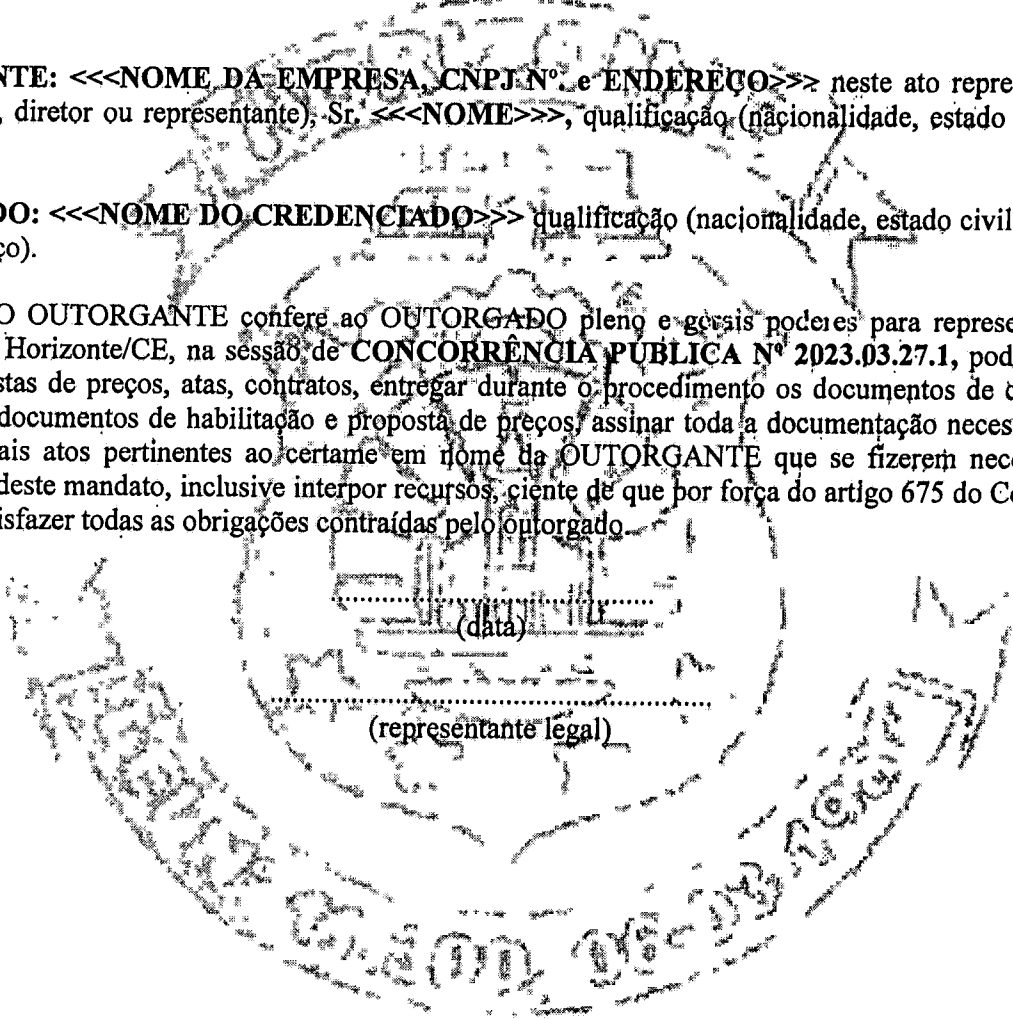 NTE: <<<NOME DA EMPRESA, CNPJ Nº. e ENDEREÇO>>> neste ato repre
, diretor ou representante), Sr. <<<NOME>>>, qualificação (nacionalidade, estado
DO: <<<NOME DO CREDENCIADO>>> qualificação (nacionalidade, estado civil
ço).
O OUTORGANTE confere ao OUTORGADO pleno e gerais poderes para represe
Horizonte/CE, na sessão de CONCORRÊNCIA PÚBLICA Nº 2023.03.27.1, pod
stas de preços, atas, contratos, entregar durante o procedimento os documentos de c
documentos de habilitação e proposta de preços, assinar toda a documentação neces
ais atos pertinentes ao certame em nome da OUTORGANTE que se fizerem nec
deste mandato, inclusive interpor recursos, ciente de que por força do artigo 675 do C
isfazer todas as obrigações contraídas pelo outorgado.
(data)
(representante legal)